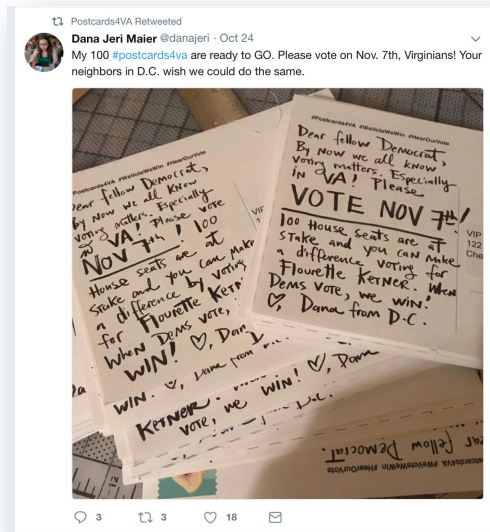 Postcards4VA Retweeted
Dana Jeri Maier @danajeri · Oct 24
My 100 #postcards4va are ready to GO. Please vote on Nov. 7th, Virginians! Your
neighbors in D.C. wish we could do the same.
Postcards4VA #WeVoteWeWin #HearOurVote
Dear fellow Democrat,
By now we all know
voting matters. Especially
in VA! Please vote
Nov 7th! 100
House seats are at
stake and you can make
a difference by voting
for Flourette Ketn
When Dems vote,
WIN! ♡, Dan
#Postcards4VA #WeVoteWeWin #HearOurVote
Dear fellow Democrat,
By now we all know
voting matters. Especially
in VA! Please
VOTE NOV 7th!
100 House seats are at
stake and you can make
a difference voting for
Flourette Ketner. When
Dems vote, we win!
♡, Dana from D.C.
VIP
122
Che
WIN. ♡, Dana from D.
Ketner.
vote, we WIN! ♡, Dana
ear fellow Democrat.
ostcards4VA #WeVoteWeWin #HearOurVote
3
3
18